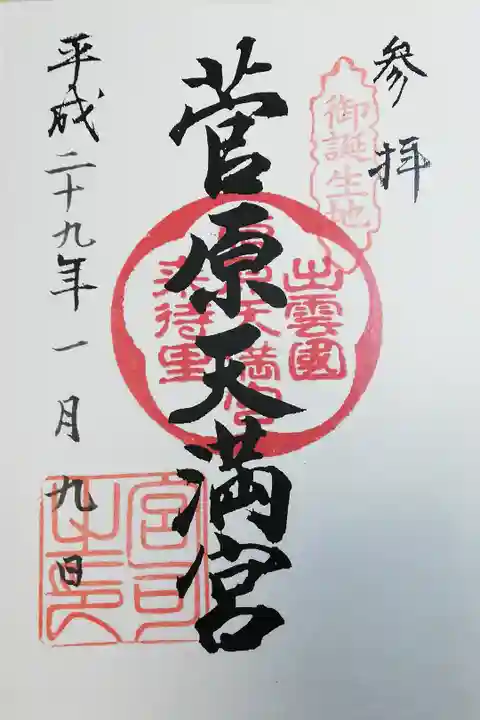 参拝
御誕生地
菅原天満宮
出雲國
菅原天満宮
来待里
平成二十九年一月九日
宮司